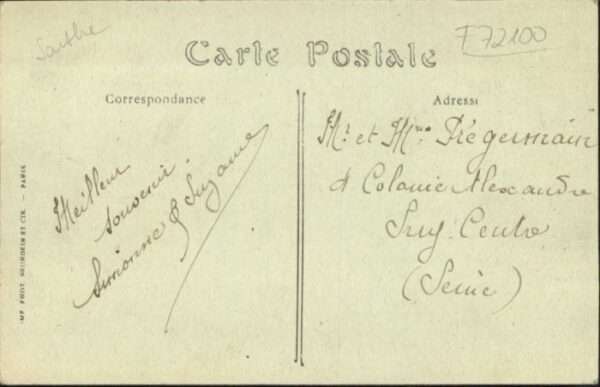 Sarthe
F72100
Carte Postale
Correspondance
Adresse
Meilleur
souvenir
Simonne & Suzanne
Mr et Mme Prégermain
Colonie Alexandre
Centre
(Seine)
IMP. PHOT. NEURDEIN ET CIE. — PARIS